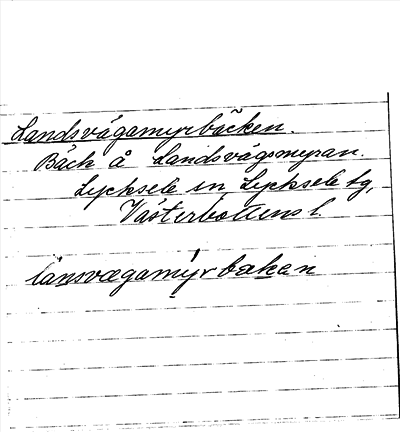 Landsvägamyrbäcken.
Bäck å Landsvägsmyran.
Lycksele sn, Lycksele tg,
Västerbottens l.
lánsvægamýrbækan